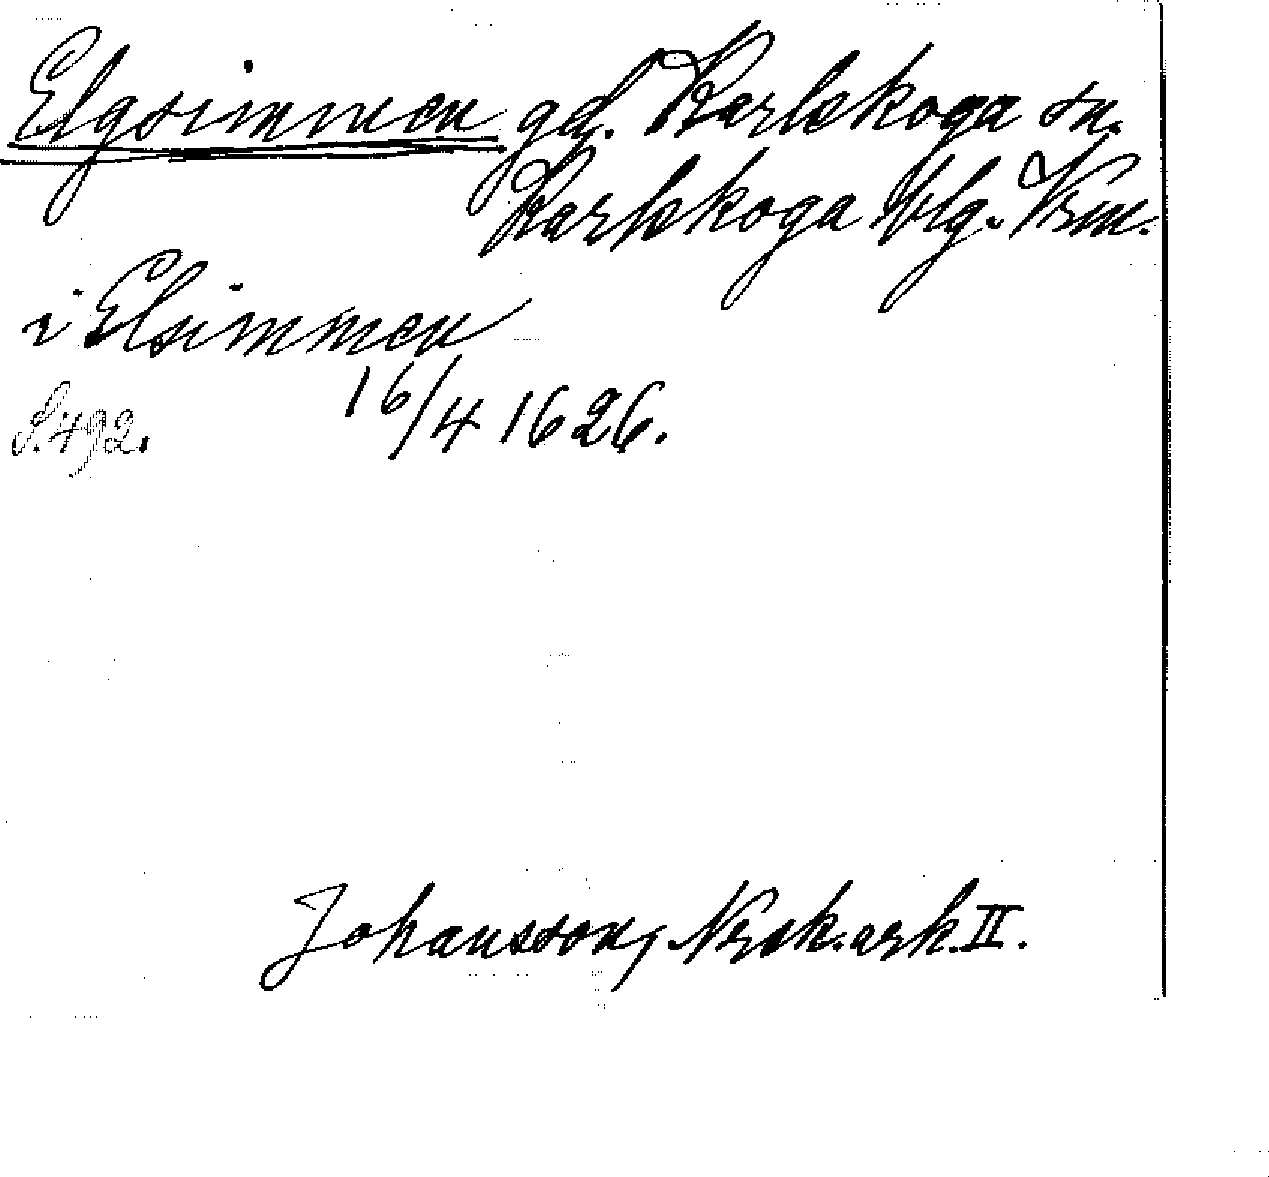 Elgsimmen gd. Karlskoga sn.
Karlskoga blg. Vrm.
i Elsimmen
S. 492. 16/4 1626.
Johansson, Noraskog. ark. II.